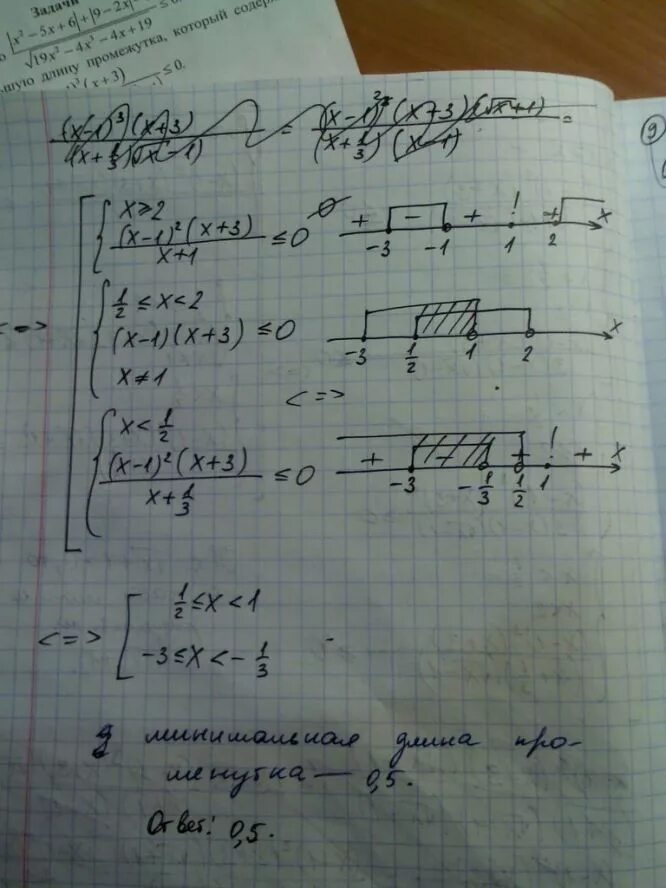 Задачи
|x² − 5x + 6| + |9 − 2x| −
√19x² − 4x³ − 4x + 19 ≤ 0.
шую длину промежутка, который содер
x³(x + 3) ≤ 0.
(x−1)³(x+3) / (x+1/3)(√x−1) = (x−1)²³(x+3)(√x+1) / (x+1/3)(x−1) =
9
x ⩾ 2
(x−1)²(x+3) / x+1 ≤ 0 ∅
+ − + ! + x
−3 −1 1 2
<=>
1/2 ≤ x < 2
(x−1)(x+3) ≤ 0
x ≠ 1
x
−3 1/2 1 2
<=>
x < 1/2
(x−1)²(x+3) / x+1/3 ≤ 0
+ − + ! + x
−3 −1/3 1/2 1
<=>
1/2 ≤ x < 1
−3 ≤ x < −1/3
минимальная длина про-
менутка — 0,5.
Ответ: 0,5.